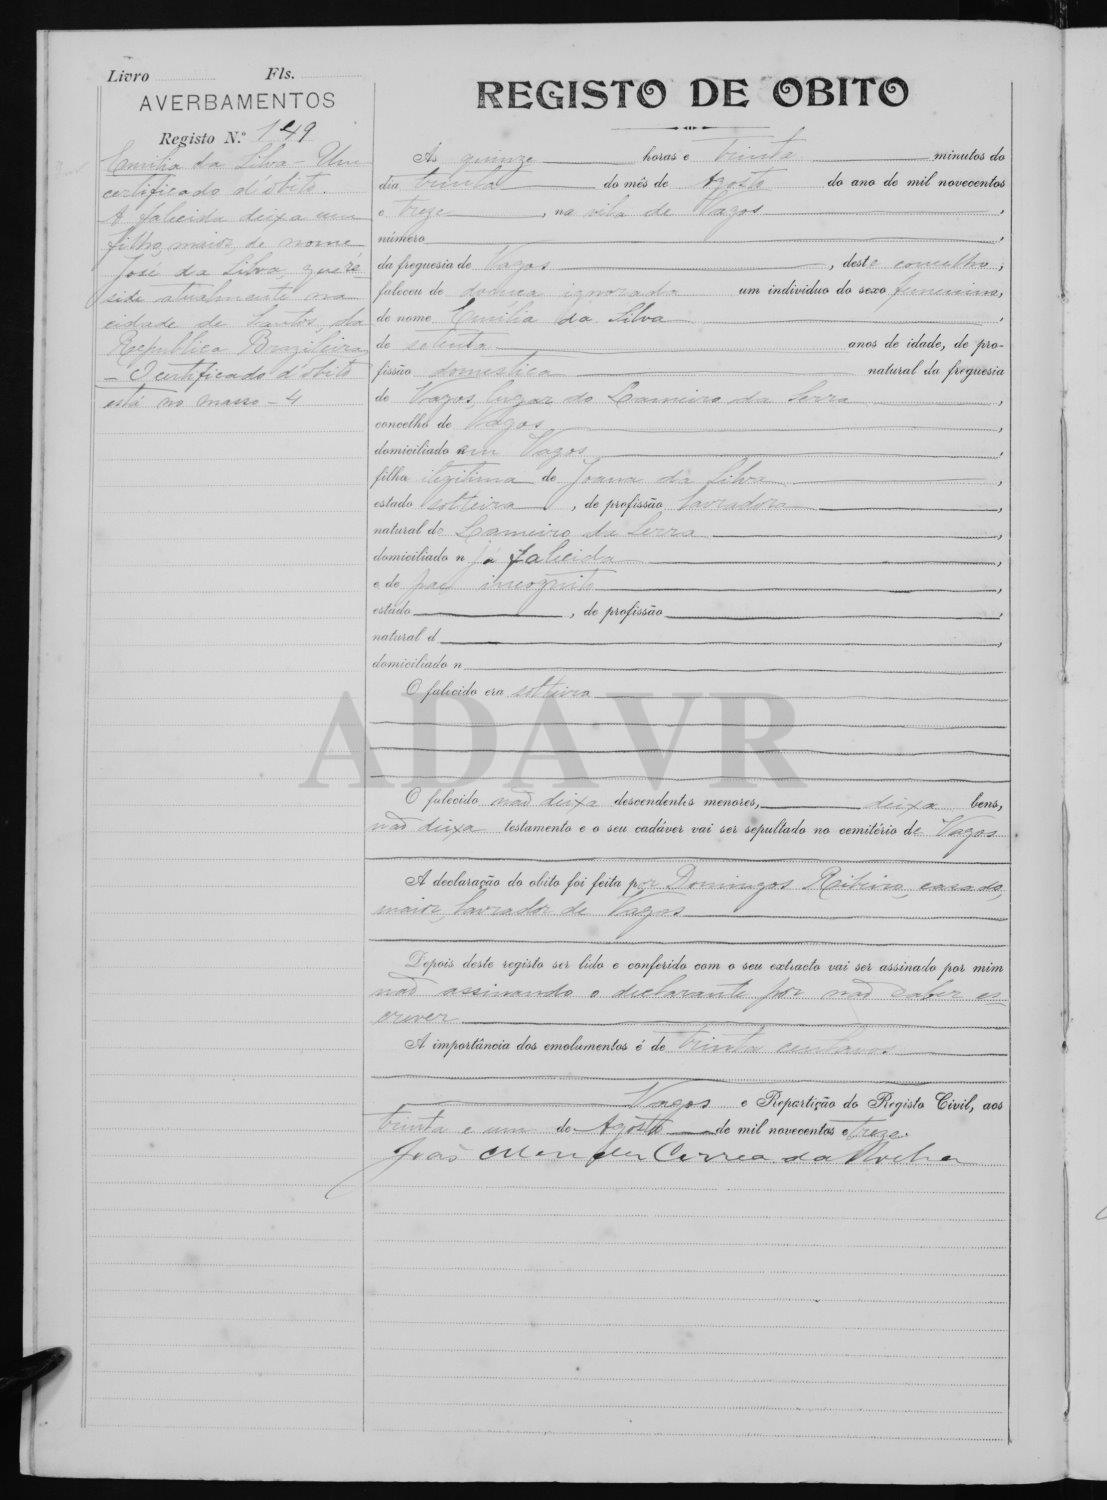 Livro Fls.
AVERBAMENTOS
Registo N.º 149
Emilia da Silva - Um
certificado d'óbito.
A falecida deixa um
filho, maior, de nome
José da Silva, que re-
side atualmente na
cidade de Santos, da
Republica Brazileira
- O certificado d'obito
está no masso - 4
REGISTO DE OBITO
Ás quinze horas e trinta minutos do
dia trinta do mês de Agosto do ano de mil novecentos
e treze, na vila de Vagos,
número,
da freguesia de Vagos, deste concelho,
faleceu de doença ignorada um individuo do sexo femenino,
de nome Emilia da Silva,
de setenta anos de idade, de pro-
fissão domestica natural da freguesia
de Vagos, lugar do Lameiro da Serra,
concelho de Vagos,
domiciliado em Vagos,
filha ilegitima de Joana da Silva,
estado solteira, de profissão lavradora,
natural do Lameiro da Serra,
domiciliado n já falecida,
e de pae incognito,
estado, de profissão,
natural d,
domiciliado n
O falecido era solteira
ADAVR
O falecido não deixa descendentes menores, deixa bens,
não deixa testamento e o seu cadáver vai ser sepultado no cemitério de Vagos
A declaração do obito foi feita por Domingos Ribeiro, casado,
maior, lavrador de Vagos
Depois deste registo ser lido e conferido com o seu extracto vai ser assinado por mim
não assinando o declarante por não saber es-
crever
A importância dos emolumentos é de trinta centavos
Vagos e Repartição do Registo Civil, aos
trinta e um de Agosto de mil novecentos e treze.
João Mendes Correa da Rocha